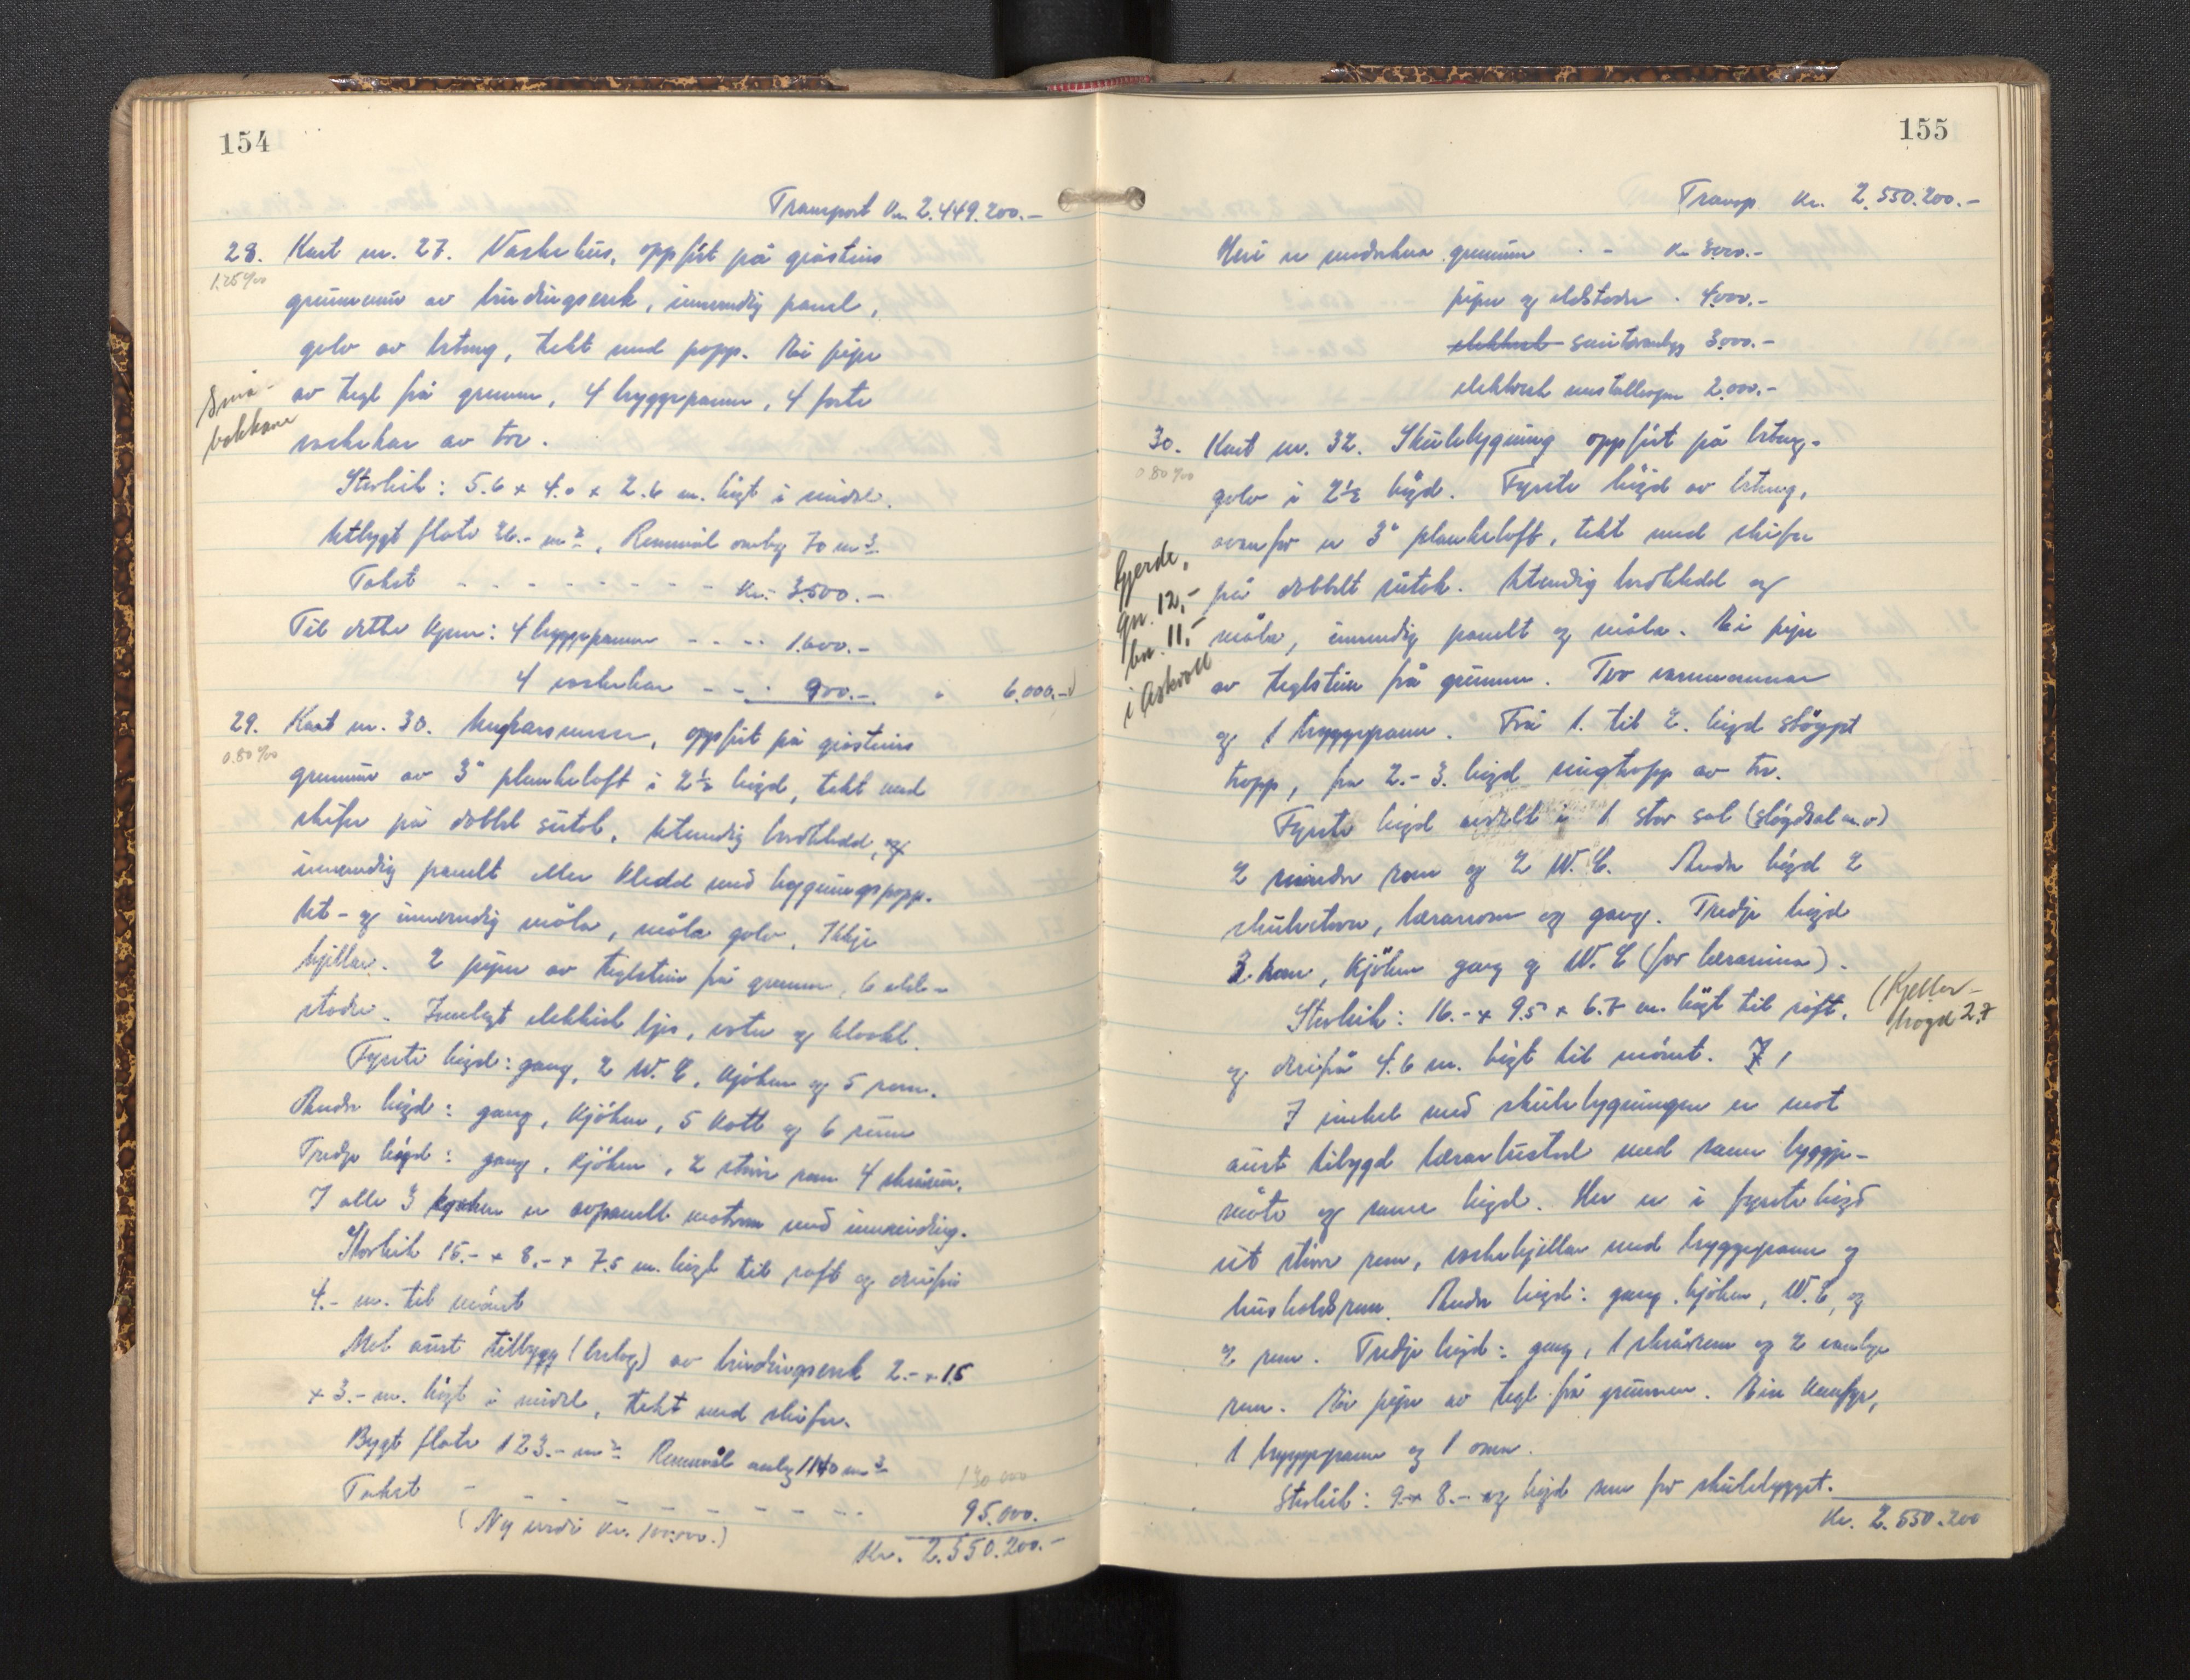 154
Transport Kr. 2.449.200.-
28. Kart nr. 27. Vaskehus, oppført på gråsteins
1.25 ‰
grunnmur av bindingsverk, innvendig panel,
golv av betong, tekt med papp. Ei pipe
Små-
av tegl frå grunnen, 4 bryggepanner, 4 faste
bakkane
vaskekar av tre.
Storleik: 5.6 x 4.0 x 2.6 m. høgt i midel.
Utbygt flate 26.- m². Rommål omlag 70 m³.
Takst - - - - - - - - kr. 3.500.-
Til dette kjem: 4 bryggepanner - - - - 1.600.-
4 vaskekar - - - 900.- " 6.000.-
29. Kart nr. 30. oppført på gråsteins
0.80 ‰
grunnmur av 3" plankeloft i 2½ høgd, tekt med
skifer på dobbel sutak. Utvendig bordkledd, og
innvendig panelt eller kledd med bygningspapp.
Ut- og innvendig måla, måla golv. Ikkje
kjellar. 2 piper av teglstein frå grunnen, 6 eld-
stader. Innlagt elektrisk ljos, vatn og kloakk.
Fyrste høgd: gang, 2 W.C, kjøken og 5 rom.
Andre høgd: gang, kjøken, 5 kott og 6 rom
Tredje høgd: gang, kjøken, 2 større rom 4 skrårom.
I alle 3 kjøken er avpanelt matrom med innreiding.
Storleik 15.- x 8.- x 7.5 m. høgt til raft og derifrå
4.- m. til mønet
Mot aust tilbygg (bislag) av bindingsverk 2.- x 1.5
x 3.- m. høgt i midel, tekt med skifer.
Bygt flate 123.- m² Rommål omlag 1140 m³
130 000
Takst - - - - - - - - - - 95.000.
(Ny verdi kr. 100.000.)
Kr. 2.550.200.-
155
Transp. kr. 2.550.200.-
Heri er medrekna grunnmur - - kr 3000.-
piper og eldstader . 4.000.-
elektrisk sanitæranlegg 3.000.-
elektrisk installasjon 2.000.-
30. Kart nr. 32. Skulebygning oppført på betong-
0.80 ‰
golv i 2½ høgd. Fyrste høgd av betong,
ovanfor er 3" plankeloft, tekt med skifer
Gjerde,
på dobbelt sutak. Utvendig bordkledd og
gnr. 12,-
måla, innvendig panelt og måla. Ei pipe
bnr. 11,-
av teglstein frå grunnen. Tvo varmeomnar
i Askvoll
og 1 bryggepanne. Frå 1. til 2. høgd støypt
tropp, frå 2.- 3. høgd svingtropp av tre.
Fyrste høgd avdelt i 1 stor sal (sløydsal m.v)
2 mindre rom og 2 W.C. Andre høgd 2
skulestover, lærarrom og gang. Tredje høgd
3 rom, kjøken gang og W.C (for lærarinna).
Storleik: 16.- x 9.5 x 6.7 m. høgt til raft,
(Kjellar-
høgd 2,7
og derifrå 4.6 m. høgt til mønet.
I vinkel med skulebygningen er mot
aust tilbygd lærarbustad med same byggje-
måte og same høgd. Her er i fyrste høgd
eit større rom, vaskekjellar med bryggepanne og
husholdsrom. Andre høgd: gang, kjøken, W.C, og
2 rom. Tredje høgd: gang, 1 skrårom og 2 vanlege
rom. Ei pipe av tegl frå grunnen. Ein komfyr,
1 bryggepanne og 1 omn.
Storleik: 9.- x 8.- og høgd som for skulebygget.
Kr. 2.550.200